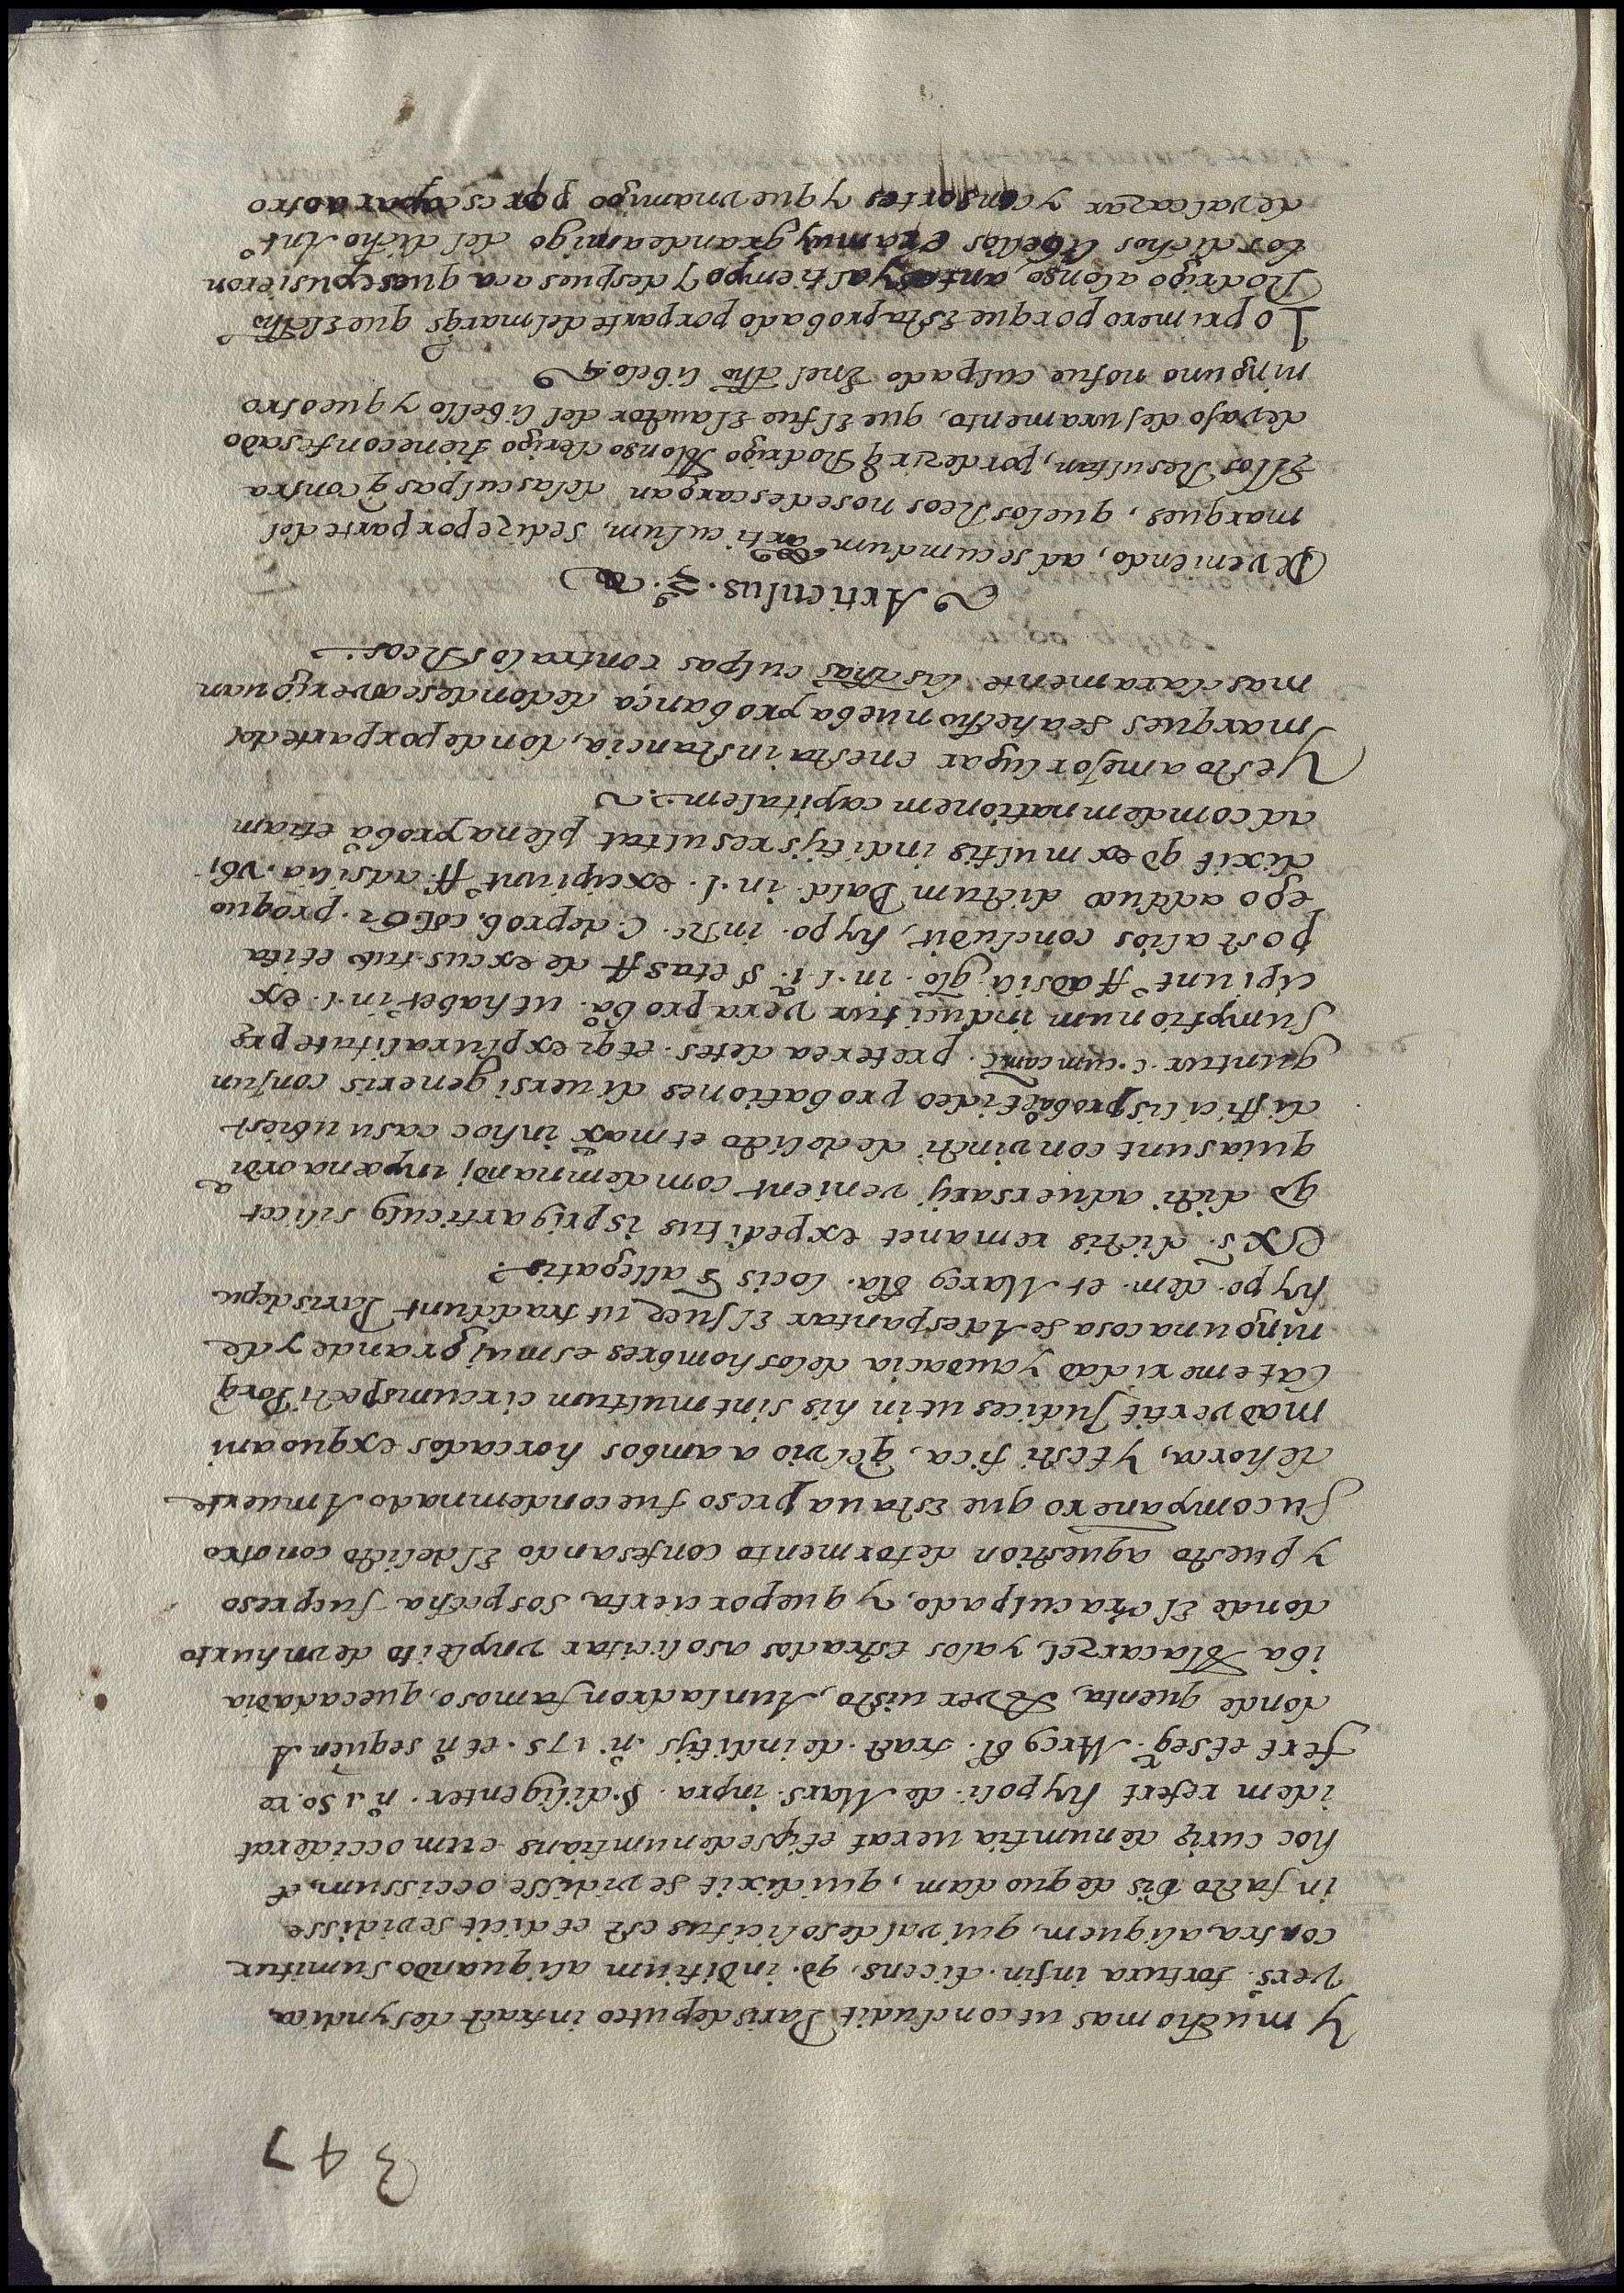 347
Y mucho mas ut concludit Paris de puteo in tract de syndica
vers. tortura in fin. dicens, qd. inditium aliquando sumitur
contra aliquem, qui valde solicitus est et dicit se vidisse
in facto vis de quodam, qui dixit se vidisse occissum, et
hoc curie denuntia uerat et ipse denumtians eum occiderat
idem refert hypoli. de Mars. in pra. §. diligenter. nº 150. re
fert et seqr. Marcg bl. tract. de inditijs. nº. 175. et nº sequen A
donde quenta, Aver uisto, A un ladron famoso, que cada dia
iba A la carzel, y a los estrados a solicitar vn pleito de vn hurto
donde El era culpado, y que por cierta sospecha fue preso
y puesto a question de tormento confesando El delicto con otro
su companero que Estaua preso fue condemnado A muerte
de horca, y testi fica, q el vio a ambos horcados ex quo ani
madvertit Judices ut in his sint multum circumspecti Porq
la temeridad y audacia de los hombres es muj grande y de
ninguna cosa se A de espantar El juez ut tradunt Paris depu
hypo. dem. et Marcg bla. locis s allegatis.
Ex s. dictis remanet expeditus is prig articulg silicet
qd dicti adversarij venient comdemnandi in pæna ordiª
quia sunt convincti de delicto et max in hoc casu ubi est
difficilis probatº et ideo probationes diuersi generis conjun
guntur. c. cum cam. preterea detes. et qr ex pluralitate pre
sumptionum inducitur vera probª. ut habetr in. l. ex
cipiunt ff ad sila, glo. in. l. 1. § etas ff de excus tut et ita
post alios concludit, hypo. in Rc. C. de prob. col. 2. pro quo
ego adduco dictum Bald. in. l. excipiunt ff. ad silia. vbi
dixit qd ex multis inditijs resultat plena probª etiam
ad comdemnationem capitalem.
Y esto a mejor lugar en esta instancia, donde por parte del
marques se a hecho nueba probança de donde se averiguan
mas claramente las dhas culpas contra los Reos.
Articulus. 2º.
Deveniendo, ad secumdum articulum, se dize por parte del
marques, que los Reos no se descargan de las culpas q contra
Ellos Resultan, por dezir q Rodrigo Alonso clerigo tiene confesado
devajo de juramento, que El fue El auctor del libello y que otro
ninguno no fue culpado En el dho libelo.
Lo primero porque Esta probado por parte del marqs que El dho
Rodrigo alonso, antes y al tiempo y despues aca que se pusieron
los dichos libellos era muy grande amigo del dicho Antº
de valcazar y consortes y que vn amigo por escapar a otro